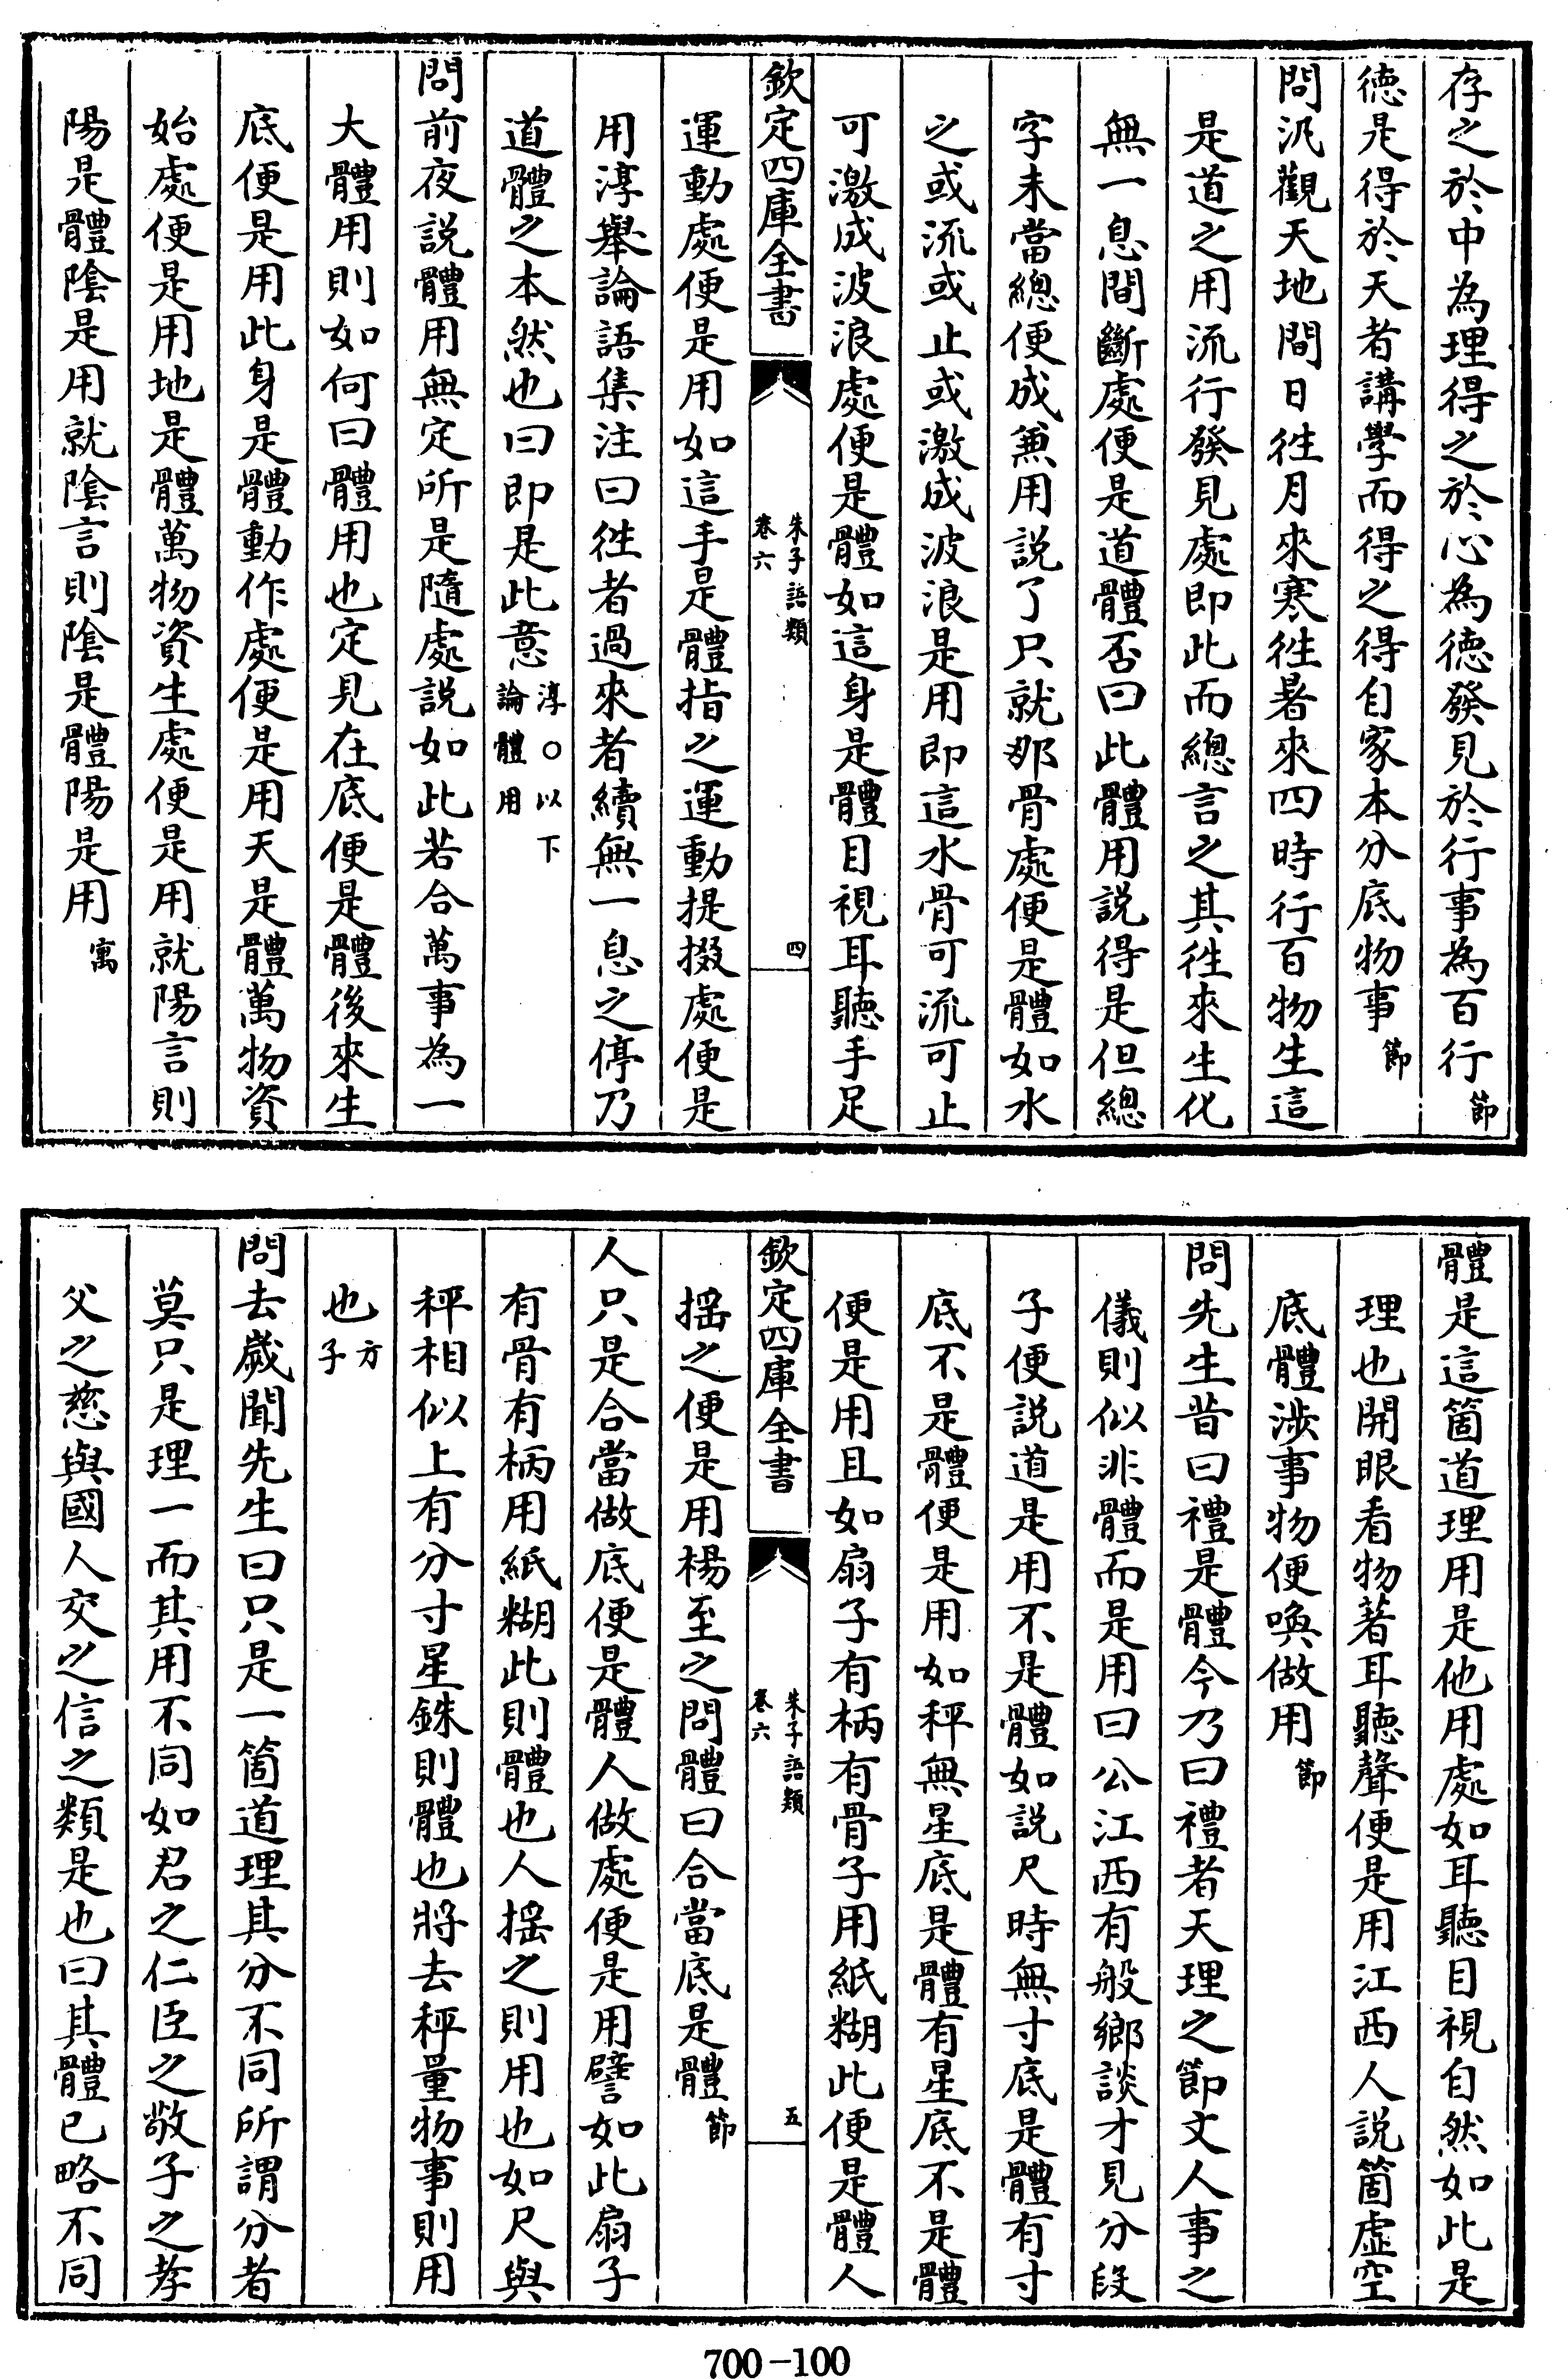 存之於中為理得之於心為徳發見於行事為百行節
徳是得於天者講學而得之得自家本分底物事節
問汎觀天地間日往月來寒往暑來四時行百物生這
是道之用流行發見處即此而總言之其往來生化
無一息間斷處便是道體否曰此體用説得是但總
字未當總便成兼用説了只就那骨處便是體如水
之或流或止或激成波浪是用即這水骨可流可止
可激成波浪處便是體如這身是體目視耳聽手足
欽定四庫全書
朱子語類
卷六
四
運動處便是用如這手是體指之運動提掇處便是
用淳舉論語集注曰往者過來者續無一息之停乃
道體之本然也曰即是此意淳○以下
論體用
問前夜説體用無定所是隨處説如此若合萬事為一
大體用則如何曰體用也定見在底便是體後來生
底便是用此身是體動作處便是用天是體萬物資
始處便是用地是體萬物資生處便是用就陽言則
陽是體陰是用就陰言則陰是體陽是用㝢
體是這箇道理用是他用處如耳聽目視自然如此是
理也開眼看物著耳聽聲便是用江西人説箇虛空
底體渉事物便喚做用節
問先生昔曰禮是體今乃曰禮者天理之節文人事之
儀則似非體而是用曰公江西有般鄉談才見分段
子便説道是用不是體如説尺時無寸底是體有寸
底不是體便是用如秤無星底是體有星底不是體
便是用且如扇子有柄有骨子用紙糊此便是體人
欽定四庫全書
朱子語類
卷六
五
揺之便是用楊至之問體曰合當底是體節
人只是合當做底便是體人做處便是用譬如此扇子
有骨有柄用紙糊此則體也人揺之則用也如尺與
秤相似上有分寸星銖則體也將去秤量物事則用
也方子
問去歲聞先生曰只是一箇道理其分不同所謂分者
莫只是理一而其用不同如君之仁臣之敬子之孝
父之慈與國人交之信之類是也曰其體已略不同
700-100